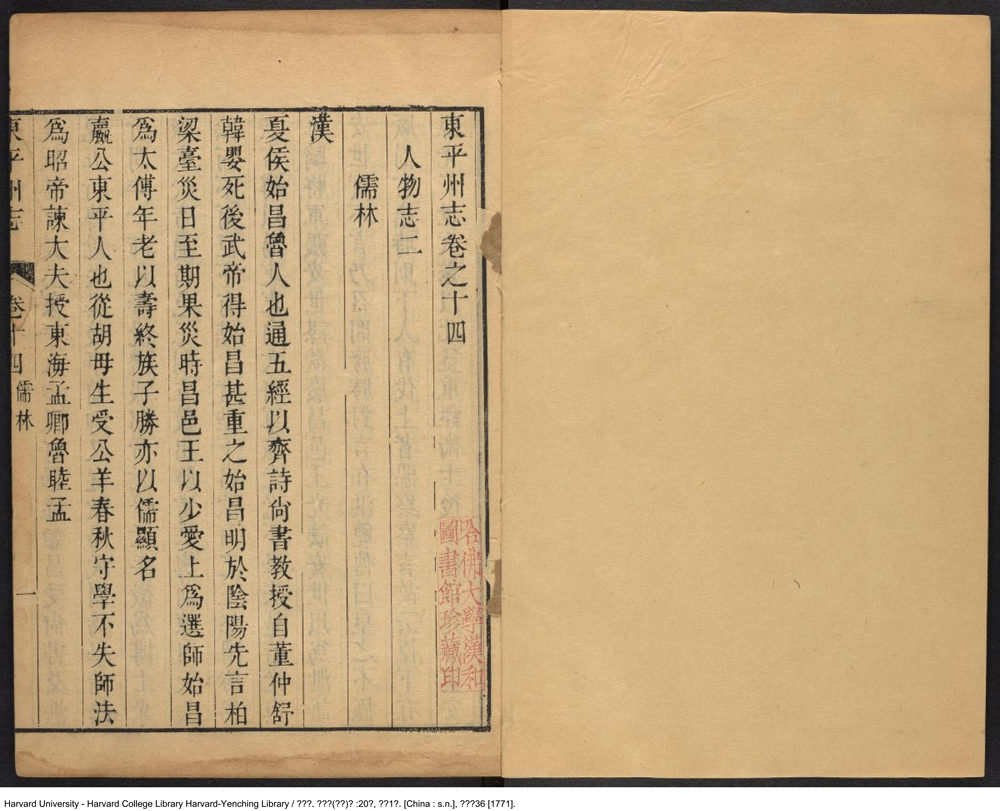 東平州志卷之十四
人物志二
儒林
漢
夏侯始昌魯人也通五經以齊詩尚書教授自董仲舒
韓嬰死後武帝得始昌甚重之始昌明於陰陽先言柏
梁臺災日至期果災時昌邑王以少愛上爲選師始昌
爲太傅年老以壽終族子勝亦以儒顯名
嬴公東平人也從胡母生受公羊春秋守學不失師法
爲昭帝諫大夫授東海孟卿魯眭孟
東平州志
卷十四 儒林
一
哈佛大學漢和
圖書館珍藏印
Harvard University - Harvard College Library Harvard-Yenching Library / ???. ???(??)? :20?, ??1?. [China : s.n.], ???36 [1771].